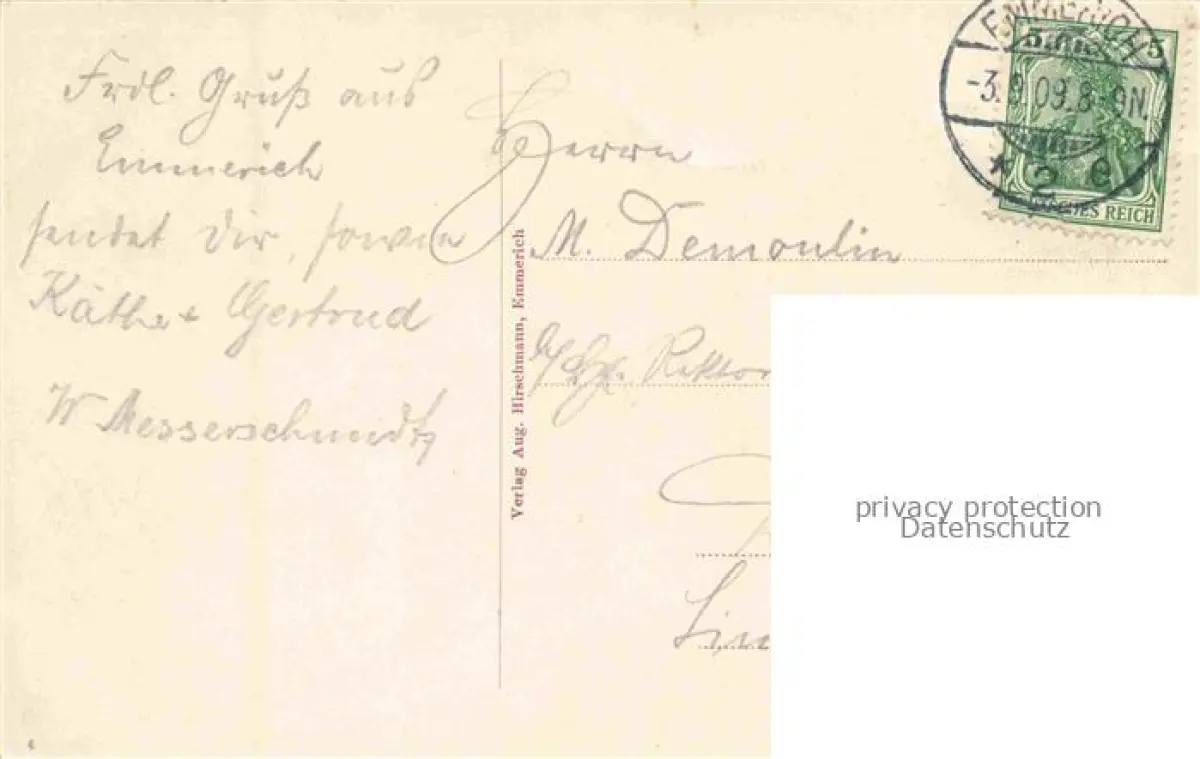 Frdl. Gruß aus
Emmerich
sendet Dir, sowie
Käthe + Gertrud
W Messerschmidt
Verlag Aug. Hirschmann, Emmerich
Herrn
M. Demoulin
Rektor
EMMERICH
-3.9.09.8-9N.
* 2 e
5 5
DEUTSCHES REICH
privacy protection
Datenschutz